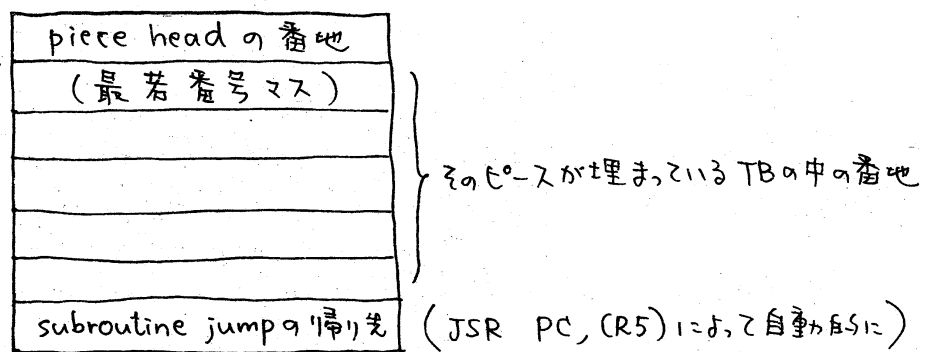 piece head の 番地
(最若番号マス)
そのピースが埋まっている TBの中の番地
subroutine jumpの帰り先 (JSR PC, (R5) によって自動的に)